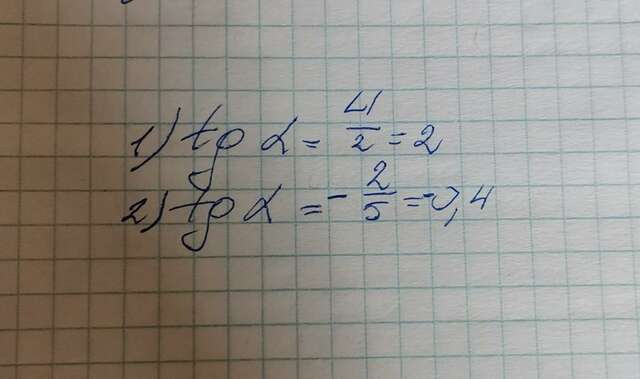 1) tg α = 4/2 = 2
2) tg α = - 2/5 = -0,4